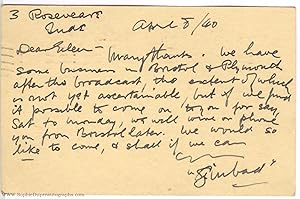 3 Rosevears
April 8/40
Dear Eileen - Many thanks. We have
some business in Bristol & Plymouth
after the broadcast the extent of which
is not yet ascertainable, but if we find
it possible to come on to you for say,
Sat to Monday, we will wire or phone
you from Bristol later. We would so
like to come, & shall if we can
"Sinbad"
www.SophieDupreAutographs.com